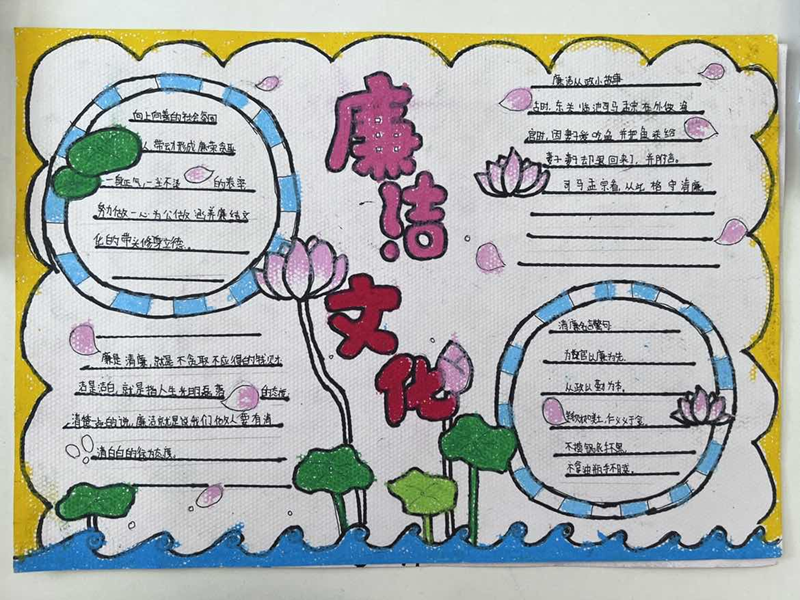 廉洁
文化
向上向善的社会氛围
人带动形成廉荣贪耻
一身正气,一尘不染的表率
努力做一心为公做涵养廉洁文
化的带头修身立德。
廉是清廉,就是不贪取不应得的钱财
洁是洁白,就是指人生光明磊落的态度
清楚一点的说,廉洁就是说我们做人要有清
清白白的行为态度。
廉洁从政小故事
古时,东吴监池司马孟宗在外做
官时,因妻子爱吃鱼,并把鱼来给
妻子,妻子却退回来了,并附信。
司马孟宗看,从此恪守清廉。
清廉名言警句
为政以廉为先
从政以勤为本。
仁义值千金。
不摸锅底手不黑,
不拿油瓶手不腻。